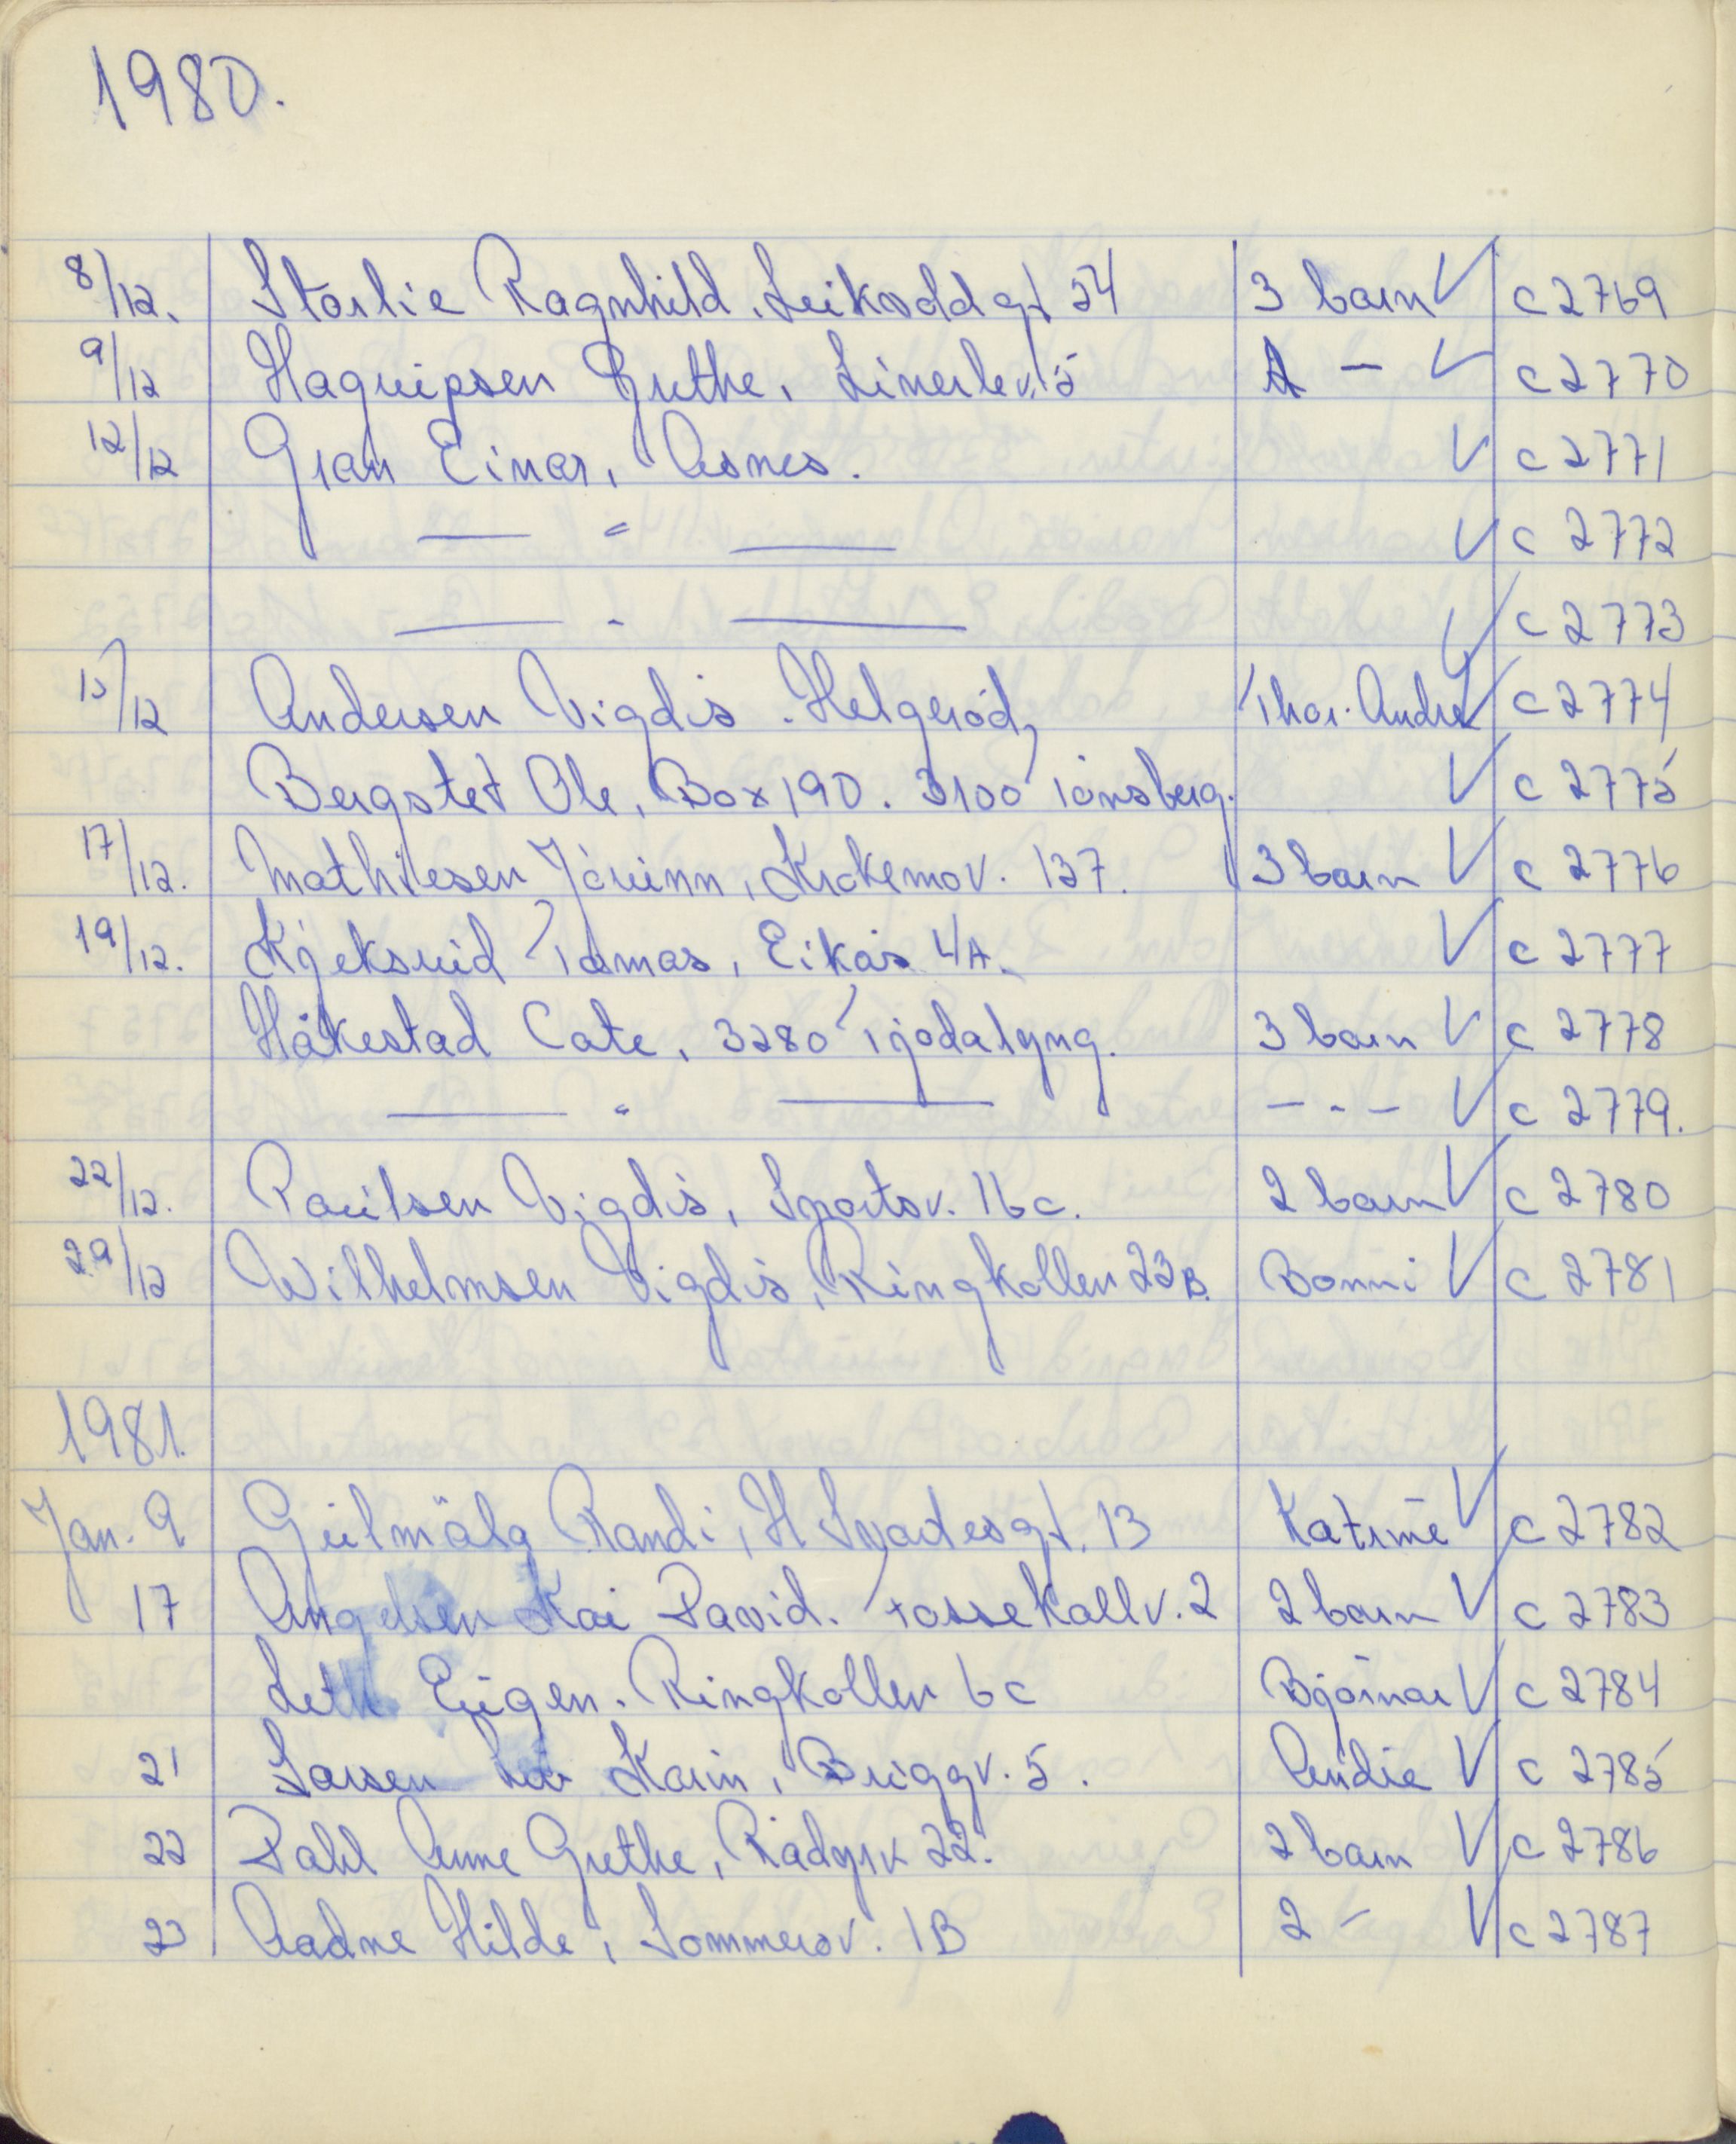 1980.
8/12. Storlie Ragnhild. Leikvoldgt 54 3 barn V c 2769
9/12 Haguipsen Grethe, Linerlev. 5 1 - V c 2770
12/12 Gran Einar, Åsnes. V c 2771
— " — V c 2772
— " — V c 2773
15/12 Andersen Vigdis. Helgerød, Thor. André V c 2774
Bergstet Ole, Box 190. 3100 Tønsberg. V c 2775
17/12. Mathiesen Jórunn, Krokemov. 137. 3 barn V c 2776
19/12. Kjeksrud Tomas, Eikås 4A. V c 2777
Håkestad Cate, 3280 Tjødalyng. 3 barn V c 2778
— " — - - - V c 2779.
22/12. Paulsen Vigdis, Sportsv. 16c. 2 barn V c 2780
29/12 Wilhelmsen Vigdis, Ringkollen 23B. Bonni V c 2781
1981.
Jan. 9 Randi, 13 Katrine V c 2782
17 Angelsen Kai David. Fossekallv. 2 2 barn V c 2783
Leth Eugen. Ringkollen 6c Bjørnar V c 2784
21 Larsen Liv Karin, Bryggv. 5. V c 2785
22 Dahl Anne Grethe, Rådyrv 22. 2 barn V c 2786
23 Aadne Hilde, Sommersv. 1B 2 - V c 2787